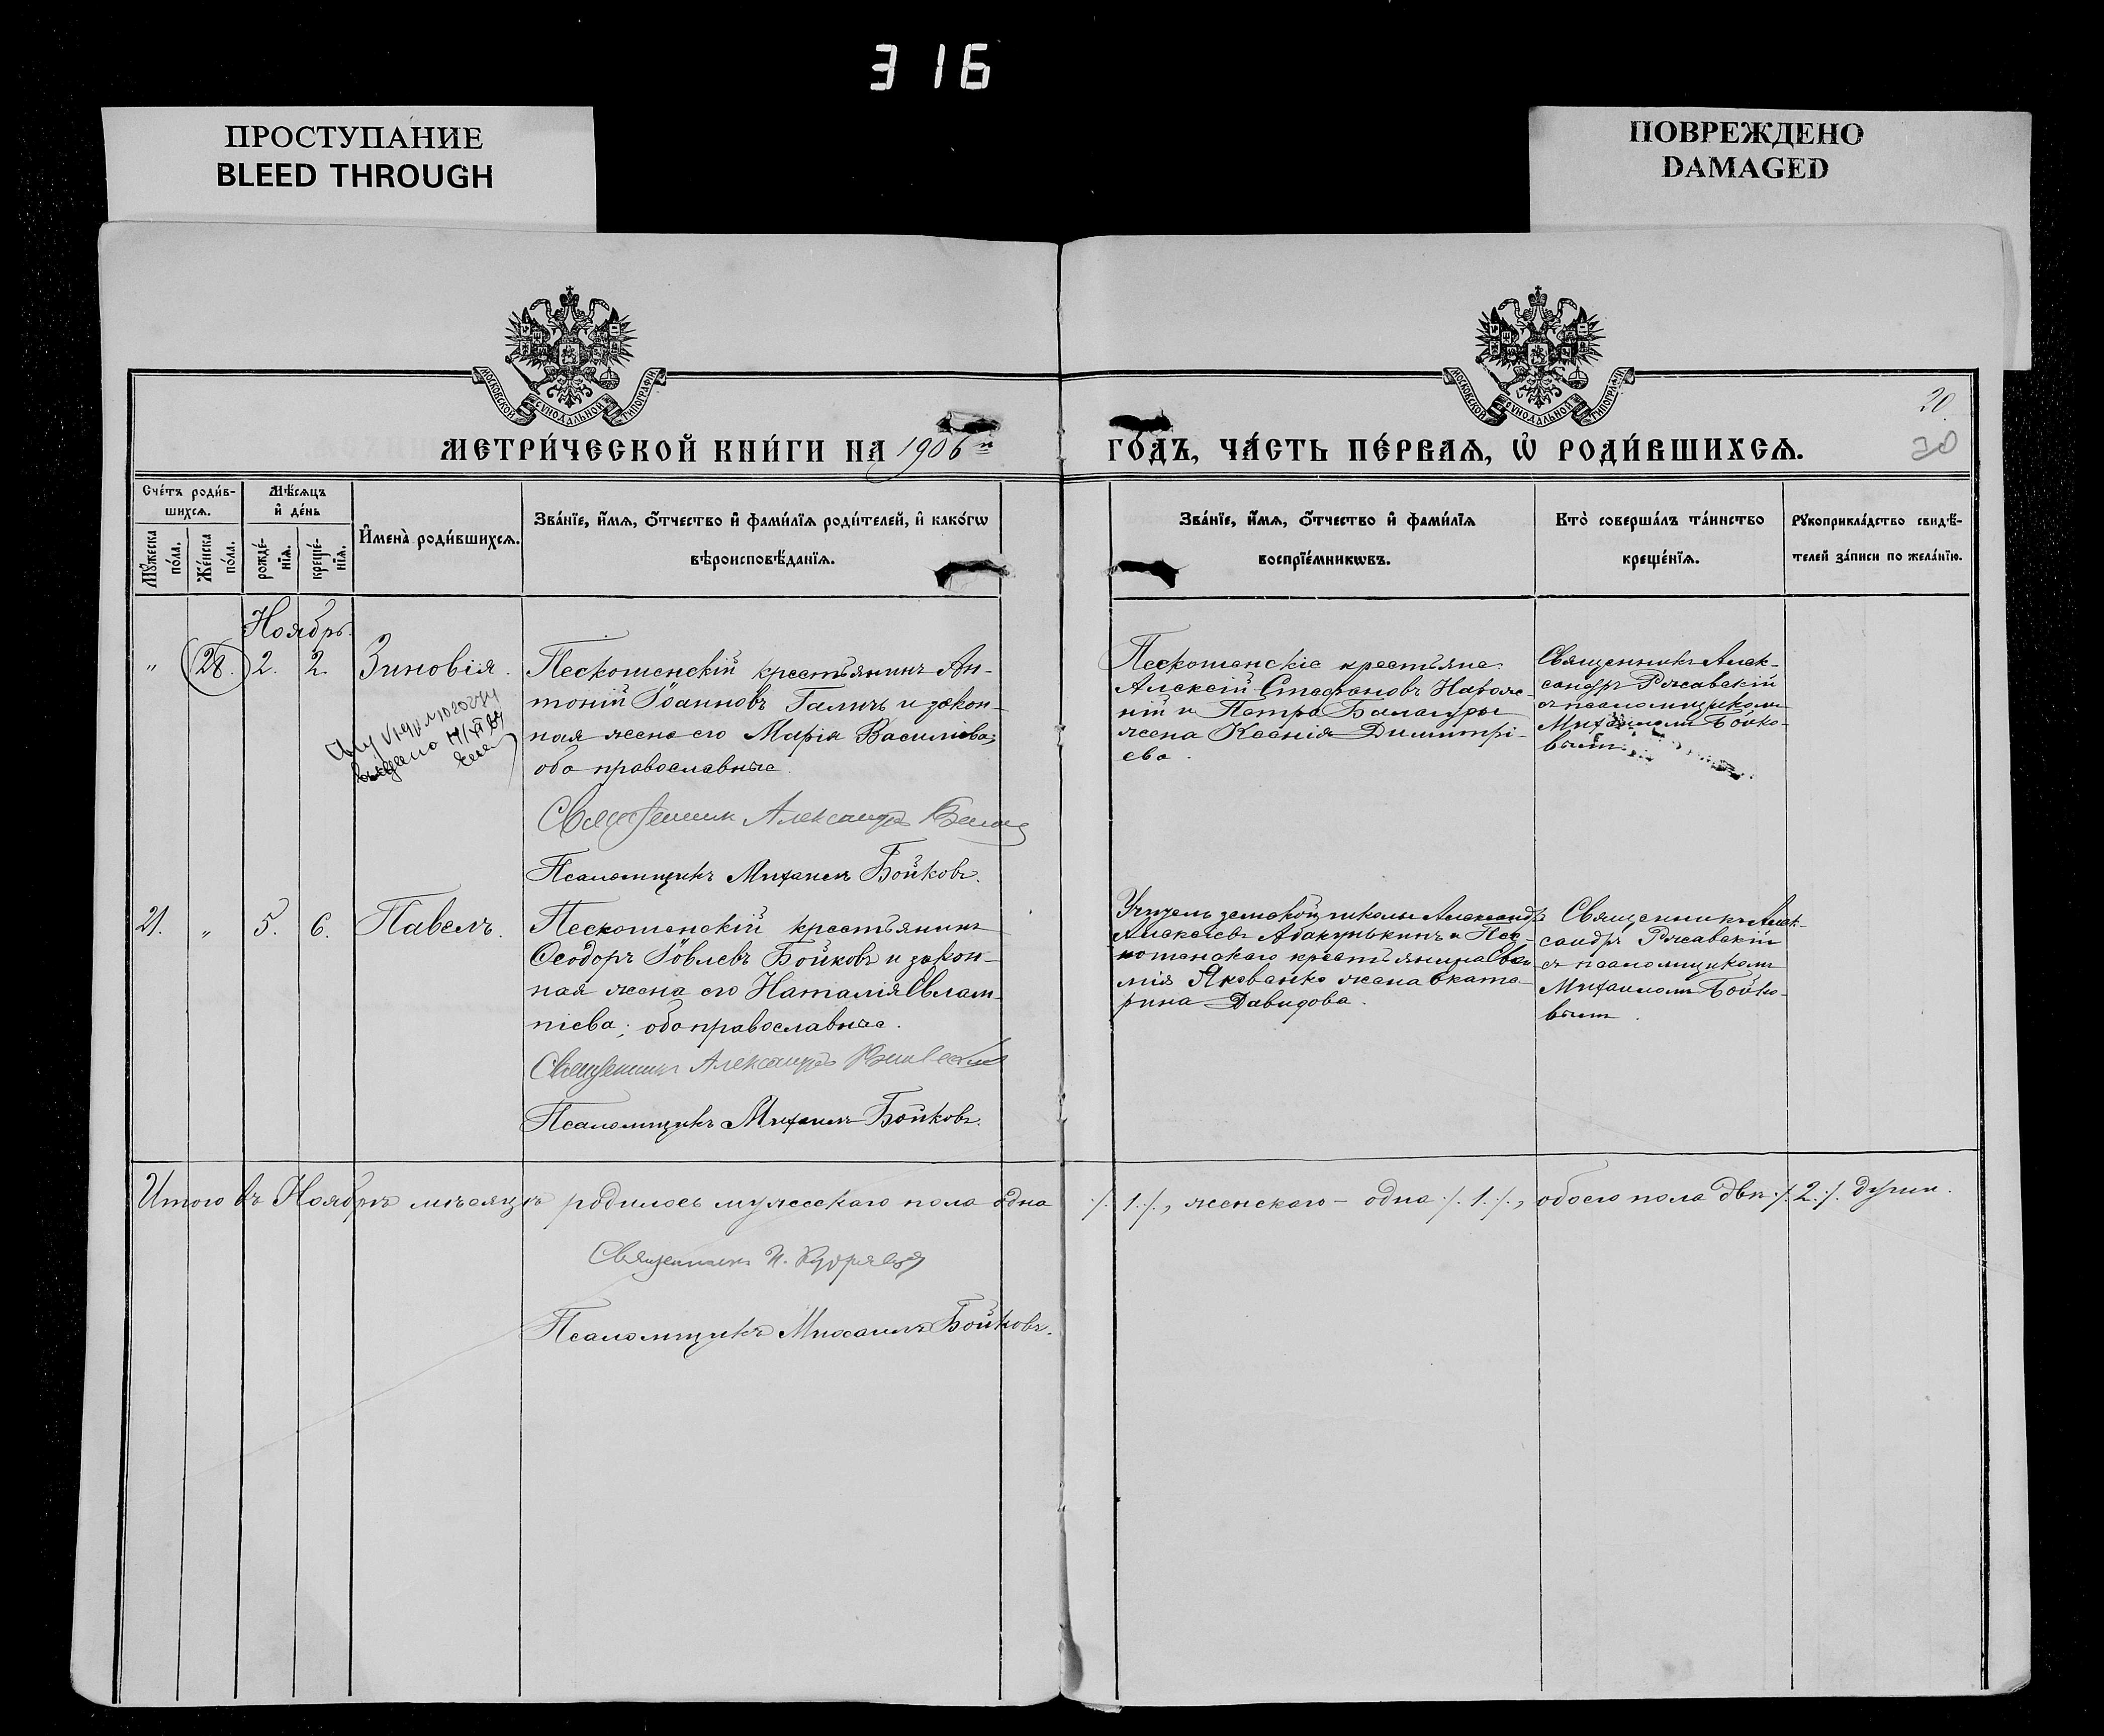 316
ПРОСТУПАНИЕ
BLEED THROUGH
ПОВРЕЖДЕНО
DAMAGED
МОСКОВСКОЙ СУНОДАЛЬНОЙ ТИПОГРАФІИ
МОСКОВСКОЙ СУНОДАЛЬНОЙ ТИПОГРАФІИ
20.
20
МЕТРИ́ЧЕСКОЙ КНИ́ГИ НА 1906 й
ГО́ДЪ, ЧА́СТЬ ПЕ́РВАЯ, Ѡ РОДИ́ВШИХСЯ.
Сче́тъ роди́в-
шихсѧ.
Мѣ́сѧцъ
и де́нь
Мꙋ́жеска
по́ла.
Же́нска
по́ла.
рожде́-
нїѧ.
креще́-
нїѧ.
Имена̀ роди́вшихсѧ.
Зва́нїе, и́мѧ, ѻ́тчество и фами́лїѧ роди́телей, и како́гѡ
вѣроисповѣ́данїѧ.
Зва́нїе, и́мѧ, ѻ́тчество и фами́лїѧ
воспрїе́мникѡвъ.
Кто̀ соверша́лъ та́инство
креще́нїѧ.
Рꙋкоприкла́дство свидѣ́-
телей за́писи по жела́нїю.
Ноябрь.
" 28. 2. 2. Зиновія.
Пескошенскій крестьянинъ Ан-
тоній Іоанновъ Галичъ и закон-
ная жена его Марія Василіева;
оба православные.
Священникъ Александръ
Псаломщикъ Михаилъ Бойковъ.
Пескошенскіе крестьяне:
Алексій Стефановъ
ній и Петра Баландры
жена Ксенія Димитрі-
ева.
Священникъ Алек-
сандръ Ржавскій
съ псаломщикомъ
Михаиломъ Бойко-
вымъ
выдано
21. " 5. 6. Павелъ.
Пескошенскій крестьянинъ
Ѳеодоръ Іовлевъ Бойковъ и закон-
ная жена его Наталія Евлам-
піева; оба православные.
Священникъ Александръ
Псаломщикъ Михаилъ Бойковъ.
Учитель земской школы Александръ
Алексѣевъ Абакумкинъ и Пес-
кошенскаго крестьянина
Яковенко жена Екате-
рина Давидова.
Священникъ Алек-
сандръ Ржавскій
съ псаломщикомъ
Михаиломъ Бойко-
вымъ.
Итого въ Ноябрѣ мѣсяцѣ родилось мужескаго пола одна ./. 1 ./., женскаго – одна ./. 1 ./., обоего пола двѣ ./. 2 ./. души.
Священникъ
Псаломщикъ Михаилъ Бойковъ.